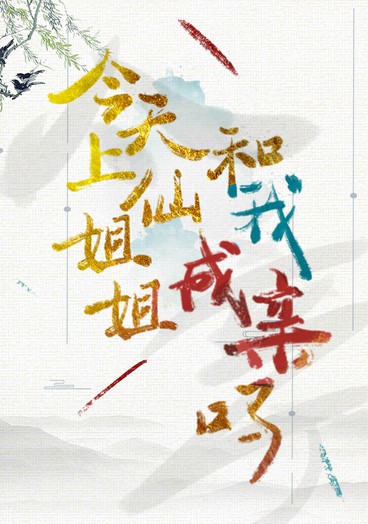 今天上仙姐姐
和我成亲吗